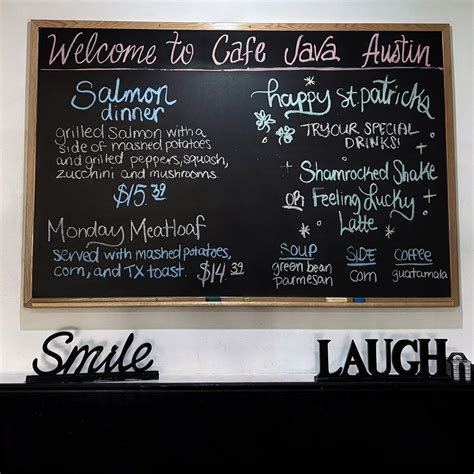 Welcome to Cafe Java Austin
Salmon
dinner
grilled salmon with a
side of mashed potatoes
and grilled peppers, squash,
zucchini and mushrooms.
$15.39
Monday Meatloaf
served with mashed potatoes,
corn, and TX toast. $14.39
happy st. patricks
TRY OUR SPECIAL
DRINKS!
Shamrocked Shake
OR Feeling Lucky
Latte
SOUP
green bean
parmesan
SIDE
corn
COFFEE
guatamala
Smile
LAUGH